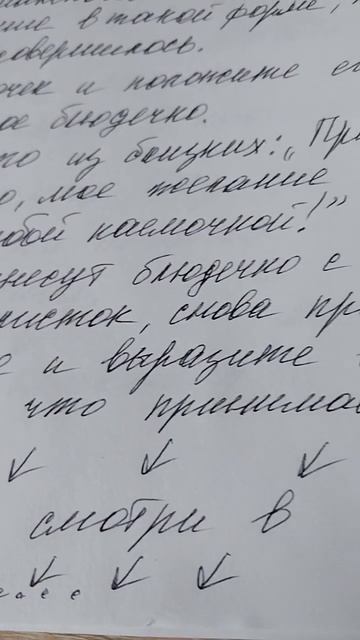 ние в такой форме,
совершилось.
очек и положите ег
ое блюдечко.
то из близких: „При
о, мое послание
лубой каемочкой!"
несут блюдечко с
листок, снова пр
е и выразите
что принимае
смотри в